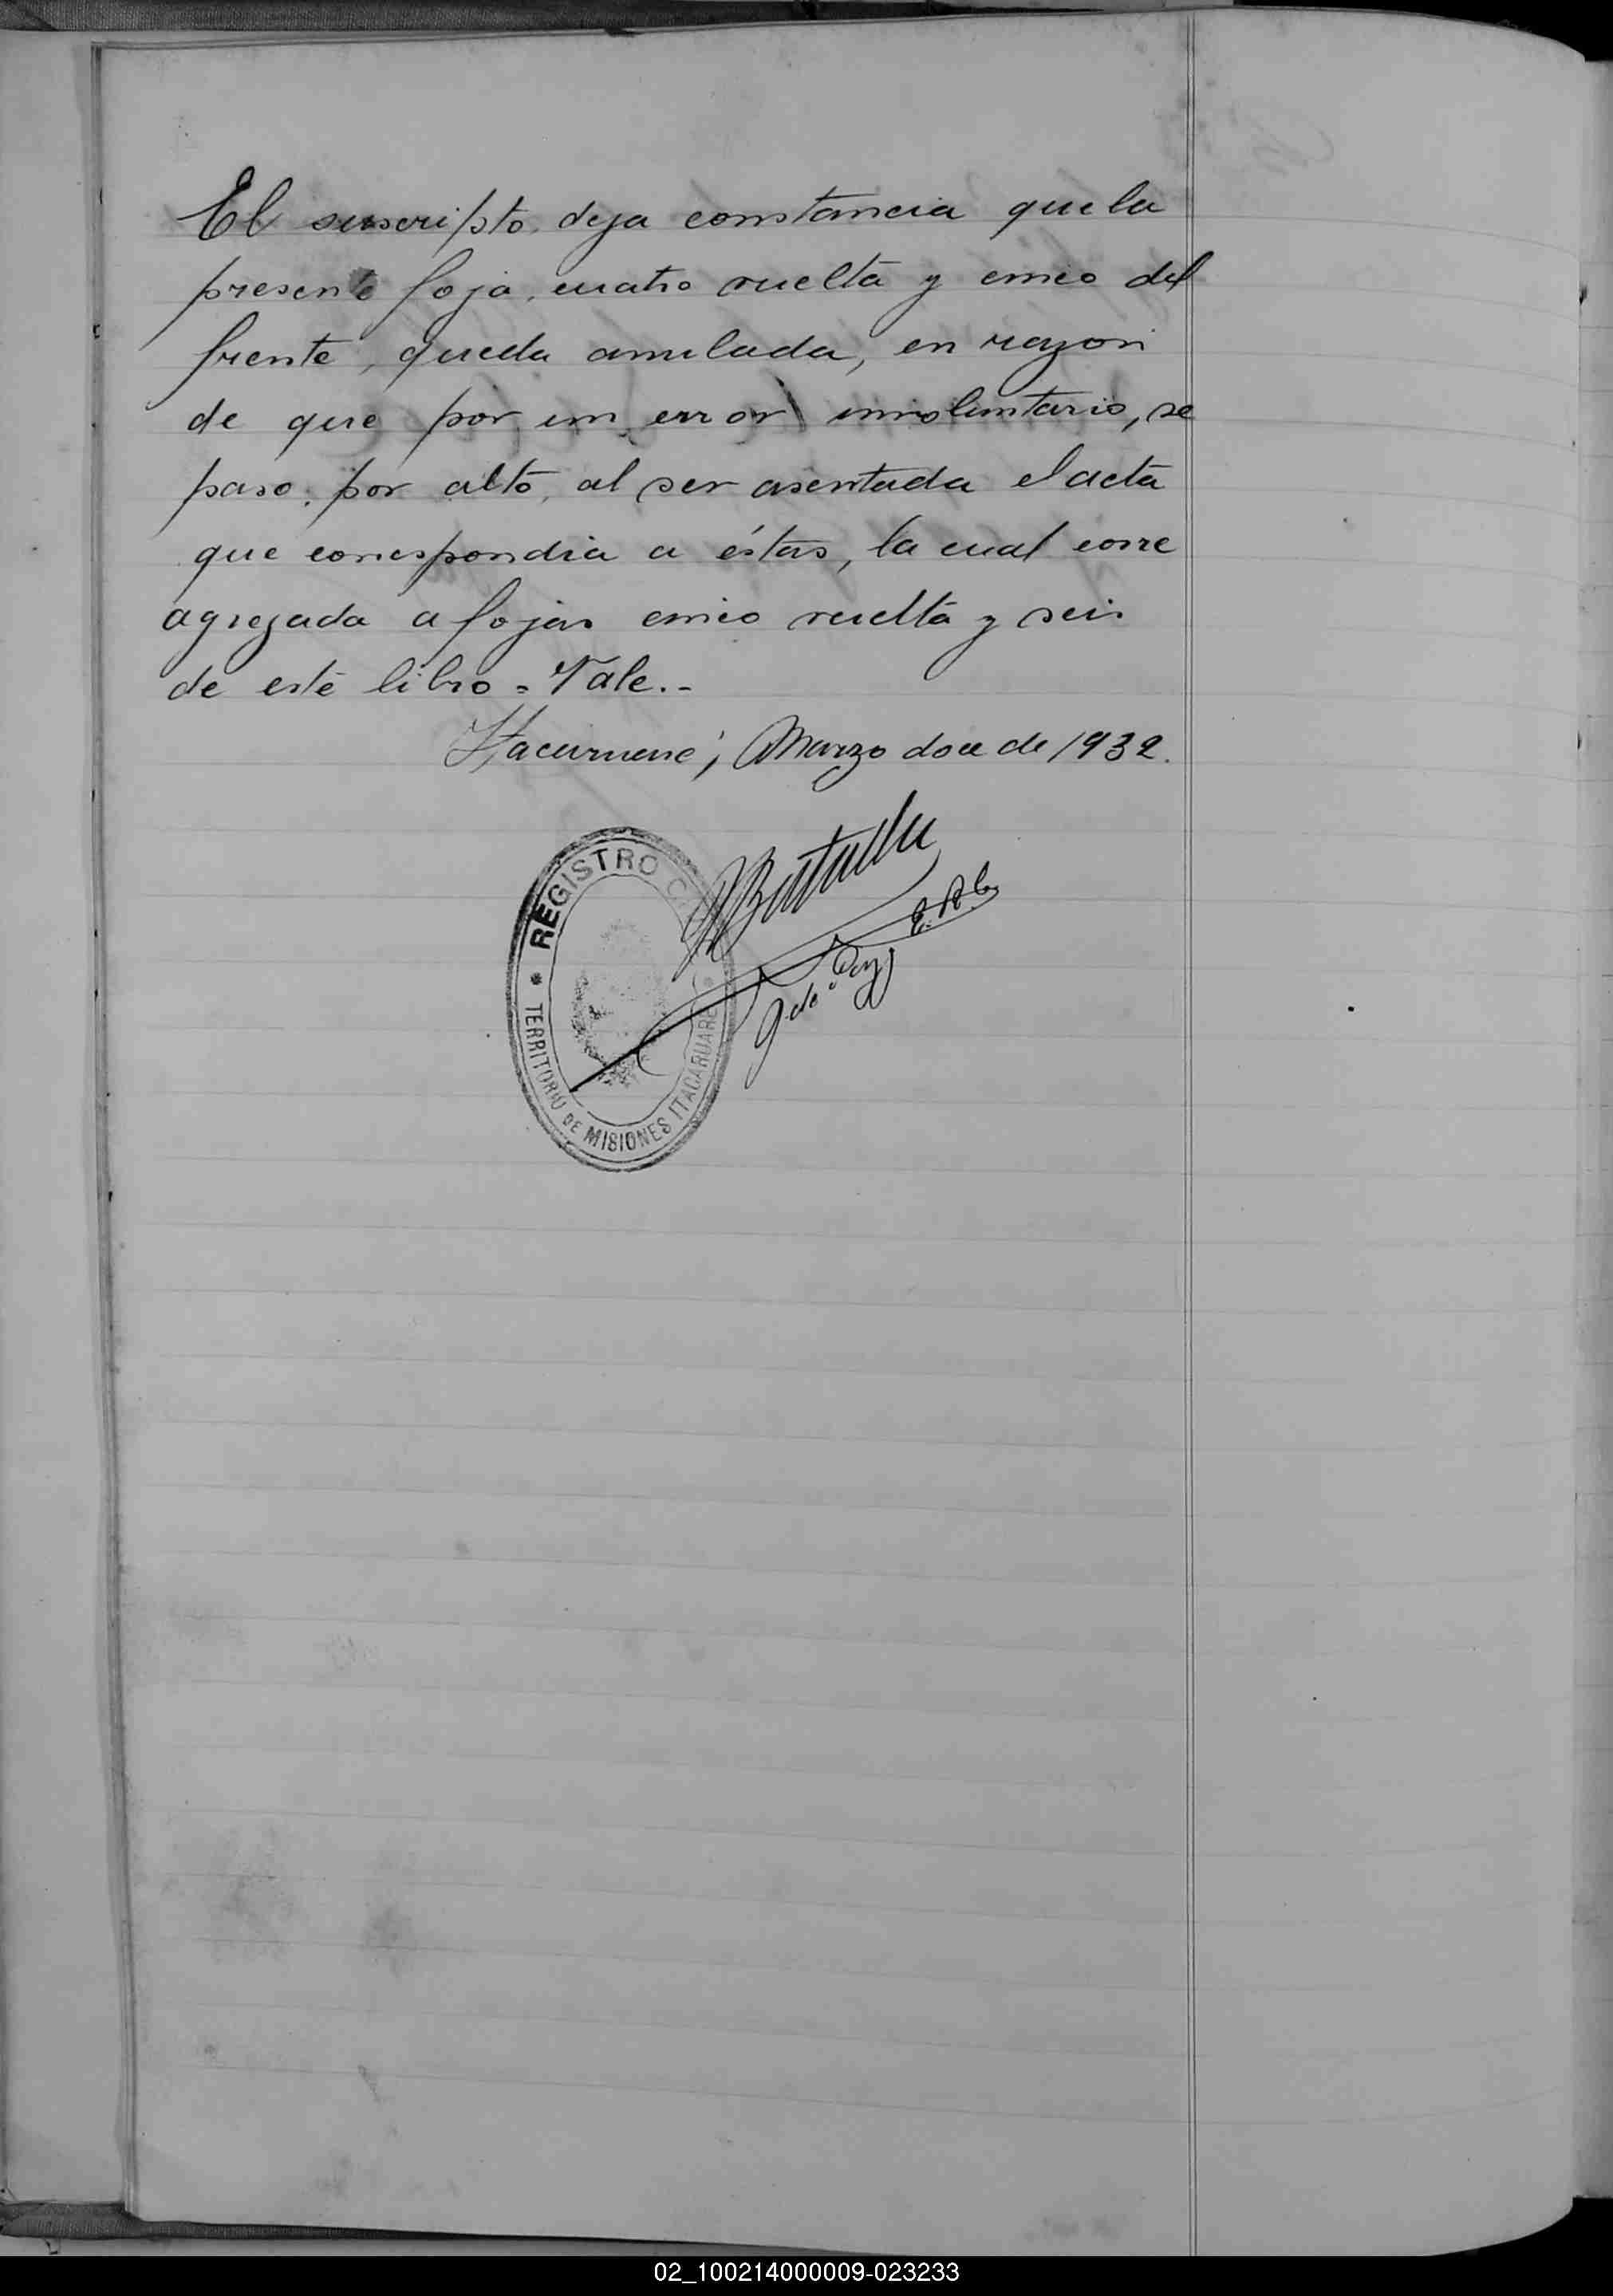 El suscripto, deja constancia que la
presente foja, cuatro vuelta y cinco del
frente, queda anulada, en razon
de que por un error involuntario, se
paso, por alto, al ser asentada el acta
que correspondia a éstas, la cual corre
agregada a fojas cinco vuelta y seis
de este libro = Vale.-
Itacaruaré, Marzo doce de 1932.
REGISTRO
TERRITORIO DE MISIONES ITACARUARE
02_100214000009-023233